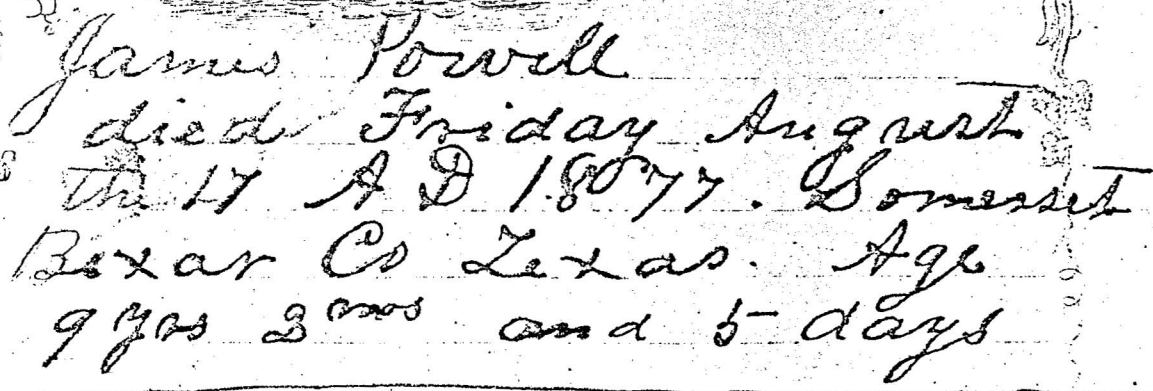 James Powell
died Friday August
the 17 A D 1877. Somerset
Bexar Co Texas. Age
9 yrs 3 mos and 5 days